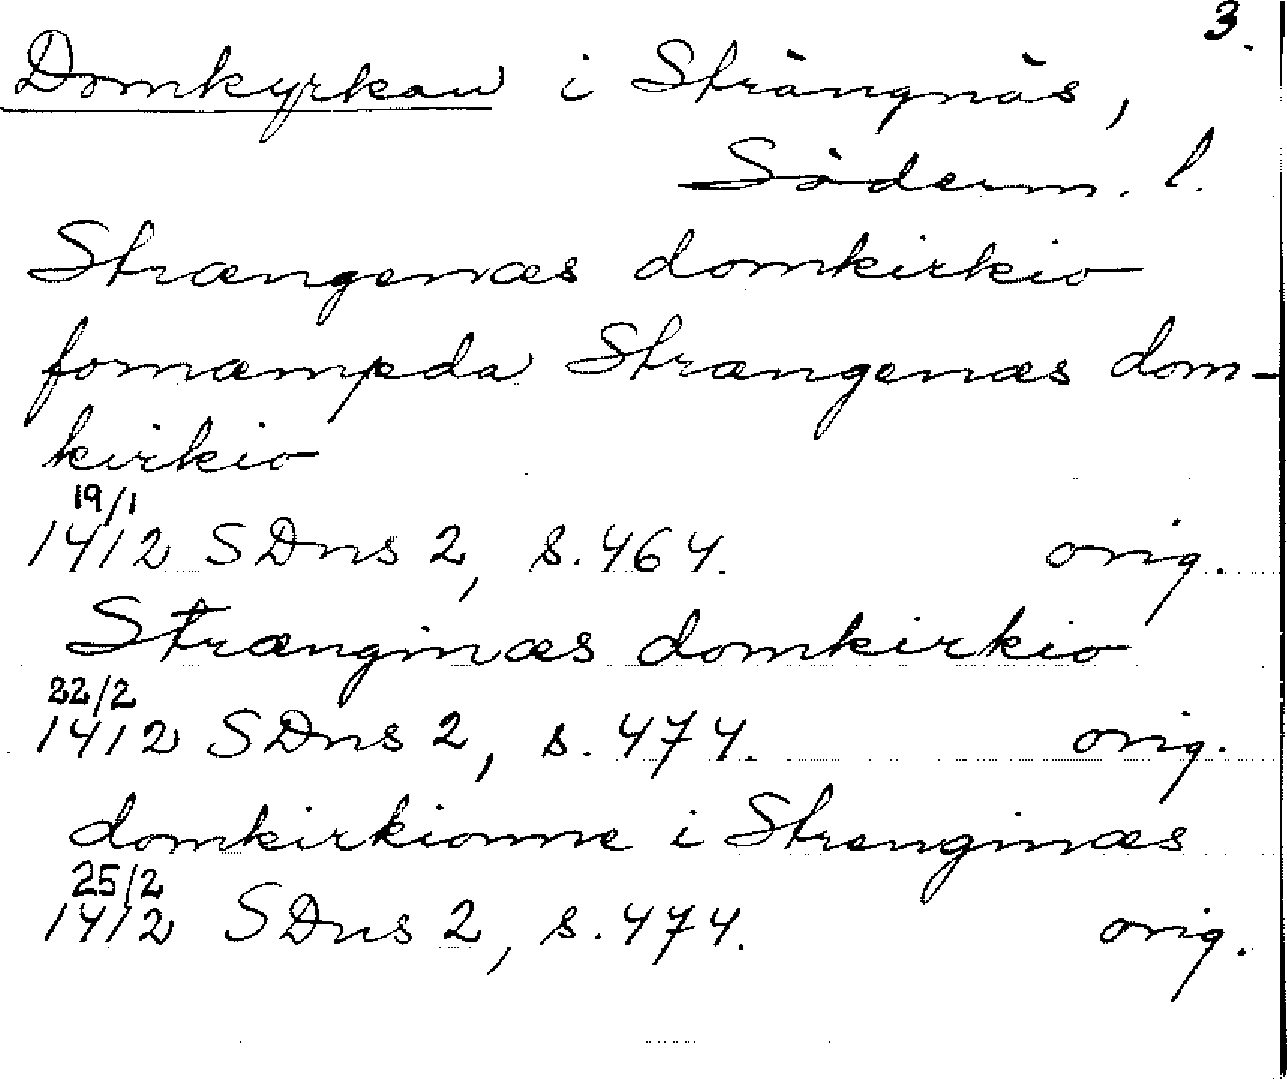 3.
Domkyrkan i Strängnäs,
Söderm. l.
Strængenæs domkirkio
fornæmpda Strængenæs dom-
kirkio
19/1
1412 SDns 2, s. 464. orig.
Strænginæs domkirkio
22/2
1412 SDns 2, s. 474. orig.
domkirkionne i Strenginæs
25/2
1412 SDns 2, s. 474. orig.